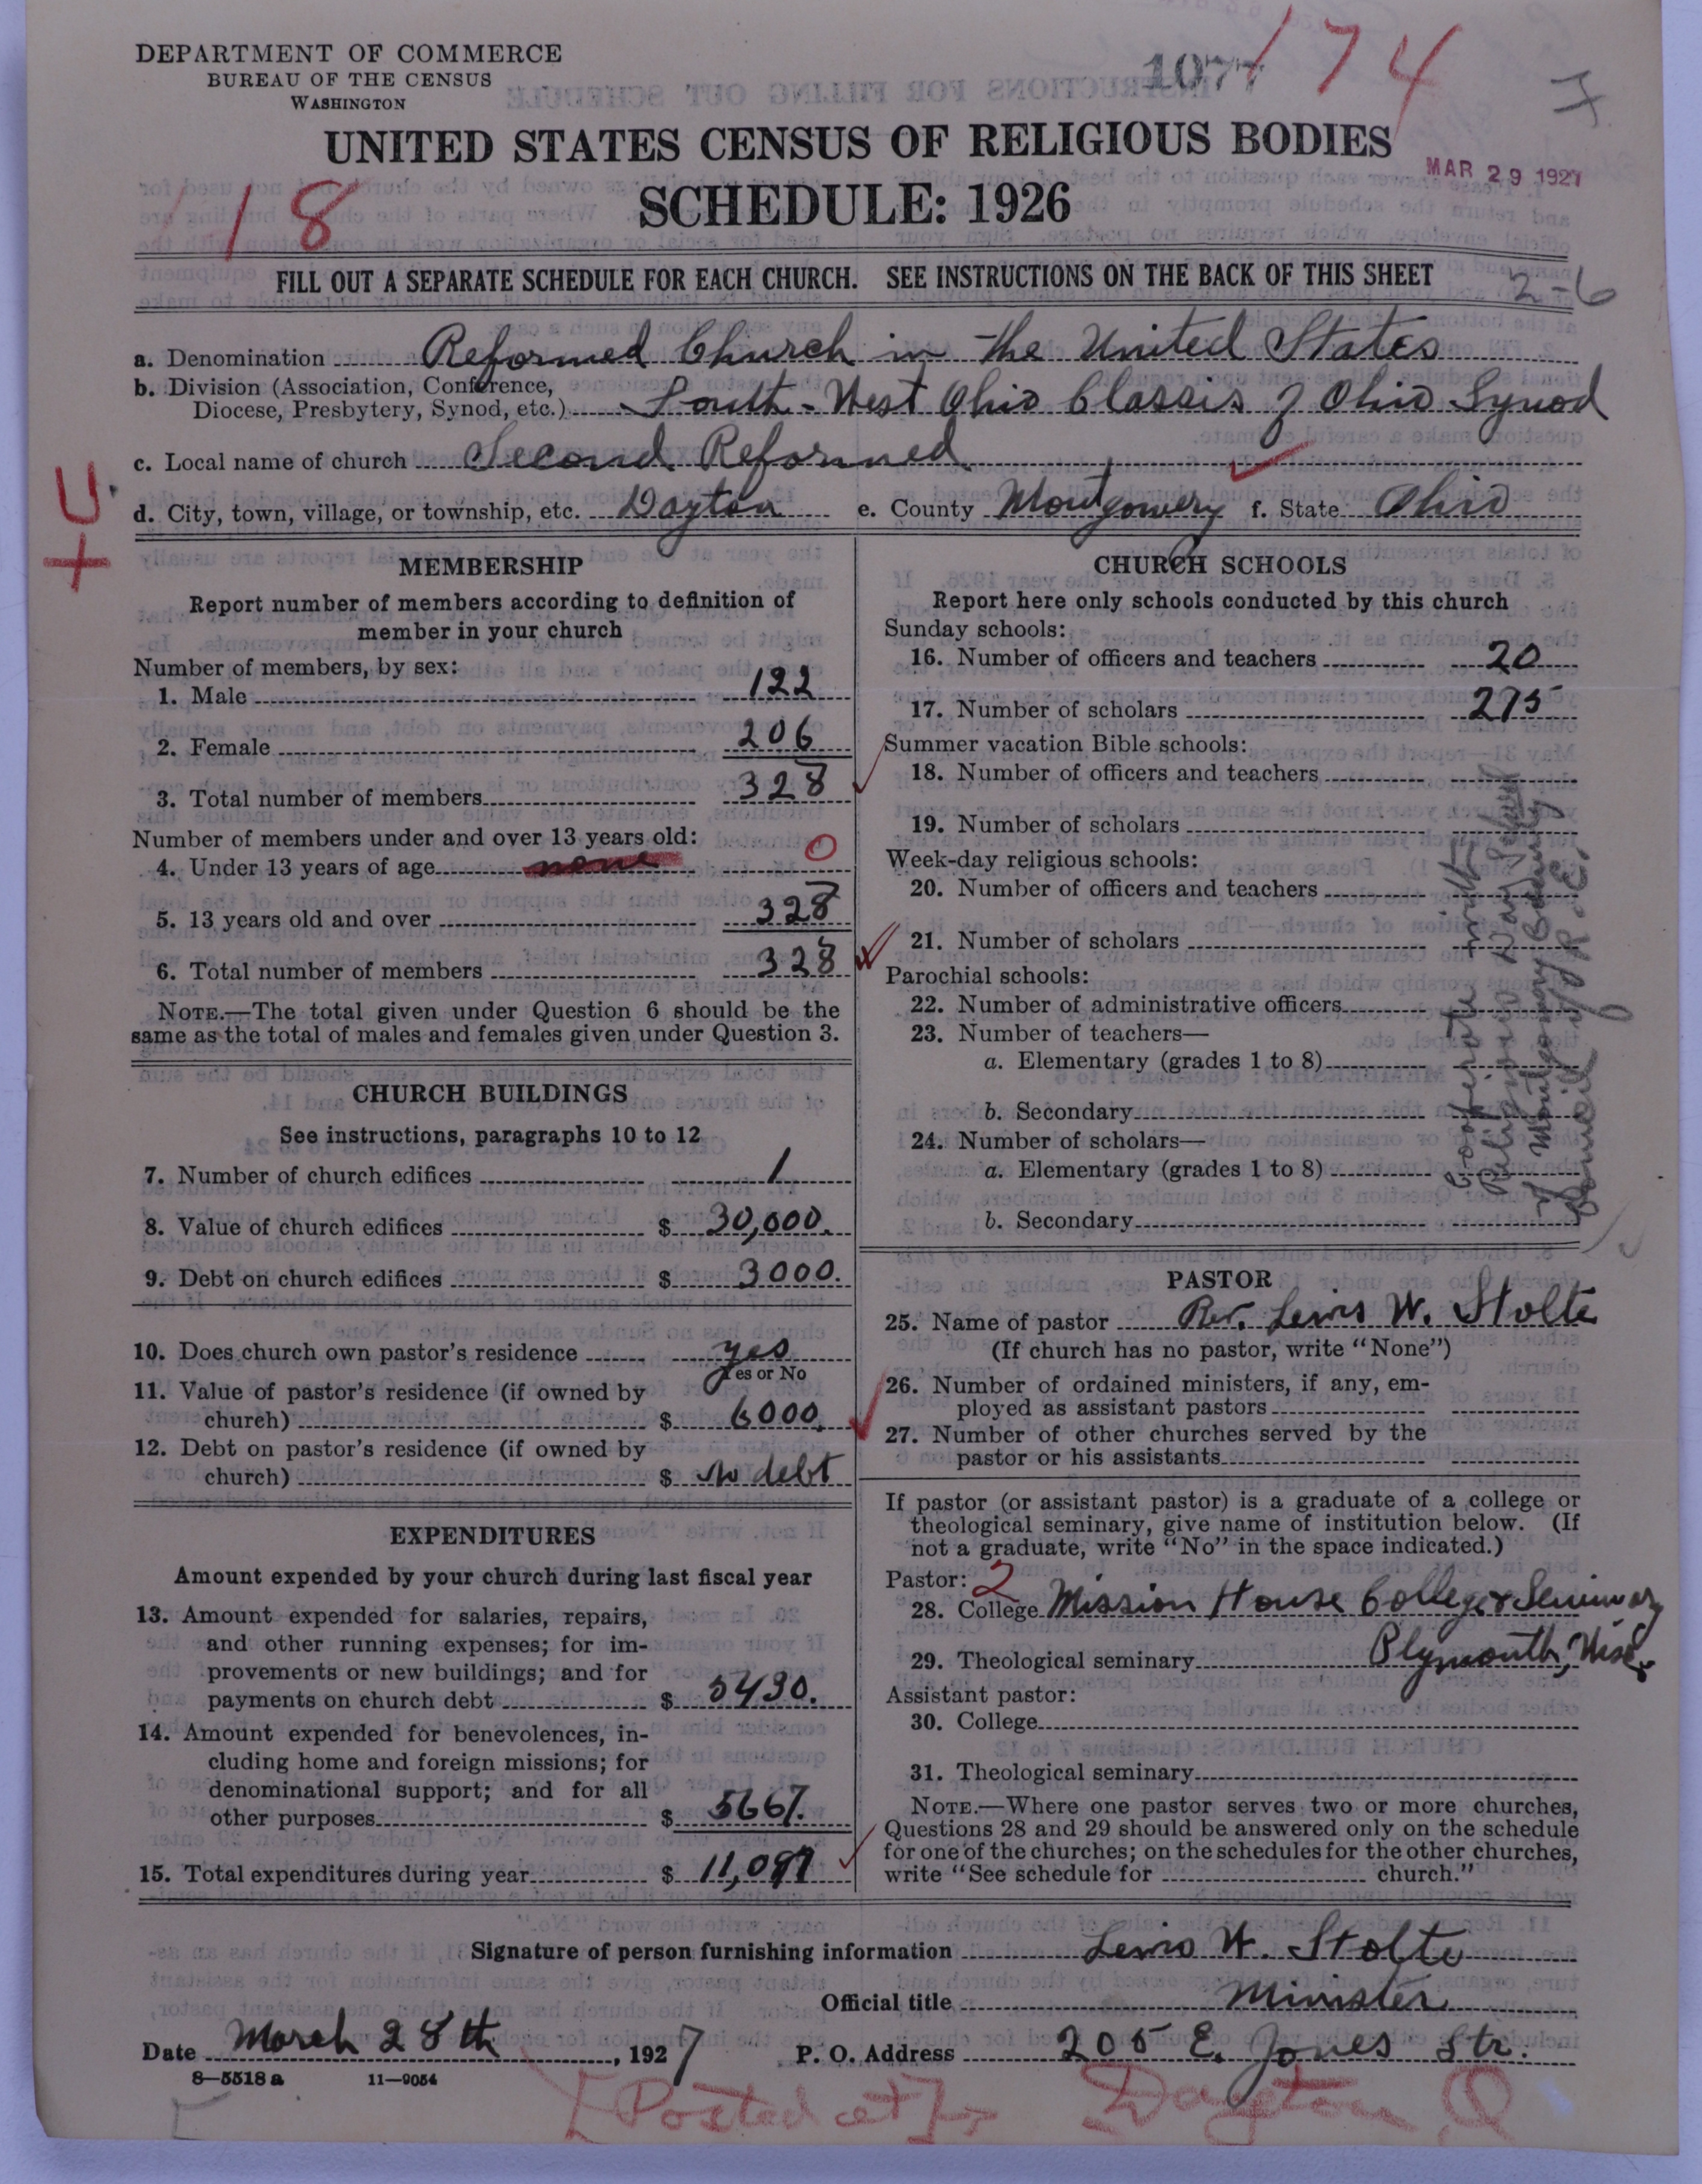 DEPARTMENT OF COMMERCE
BUREAU OF THE CENSUS
WASHINGTON
1077
174
UNITED STATES CENSUS OF RELIGIOUS BODIES
MAR 29 1927
18
SCHEDULE: 1926
FILL OUT A SEPARATE SCHEDULE FOR EACH CHURCH. SEE INSTRUCTIONS ON THE BACK OF THIS SHEET
2-6
a. Denomination Reformed Church in the United States
b. Division (Association, Conference,
Diocese, Presbytery, Synod, etc.) South-West Ohio Classis of Ohio Synod
c. Local name of church Second Reformed
d. City, town, village, or township, etc. Dayton e. County Montgomery f. State Ohio
+U
MEMBERSHIP
Report number of members according to definition of
member in your church
Number of members, by sex:
1. Male 122
2. Female 206
3. Total number of members 328
Number of members under and over 13 years old:
4. Under 13 years of age none 0
5. 13 years old and over 328
6. Total number of members 328
NOTE.—The total given under Question 6 should be the
same as the total of males and females given under Question 3.
CHURCH BUILDINGS
See instructions, paragraphs 10 to 12
7. Number of church edifices 1
8. Value of church edifices $ 30,000.
9. Debt on church edifices $ 3000.
10. Does church own pastor's residence yes
Yes or No
11. Value of pastor's residence (if owned by
church) $ 6000.
12. Debt on pastor's residence (if owned by
church) $ no debt
EXPENDITURES
Amount expended by your church during last fiscal year
13. Amount expended for salaries, repairs,
and other running expenses; for im-
provements or new buildings; and for
payments on church debt $ 5430.
14. Amount expended for benevolences, in-
cluding home and foreign missions; for
denominational support; and for all
other purposes $ 5667.
15. Total expenditures during year $ 11,097
CHURCH SCHOOLS
Report here only schools conducted by this church
Sunday schools:
16. Number of officers and teachers 20
17. Number of scholars 275
Summer vacation Bible schools:
18. Number of officers and teachers
19. Number of scholars
Week-day religious schools:
20. Number of officers and teachers
21. Number of scholars
Parochial schools:
22. Number of administrative officers
23. Number of teachers—
a. Elementary (grades 1 to 8)
b. Secondary
24. Number of scholars—
a. Elementary (grades 1 to 8)
b. Secondary
Cooperate with
Religious Day School
of Montgomery County
Council of R. E.
PASTOR
25. Name of pastor Rev. Lewis W. Stolte
(If church has no pastor, write "None")
26. Number of ordained ministers, if any, em-
ployed as assistant pastors
27. Number of other churches served by the
pastor or his assistants
If pastor (or assistant pastor) is a graduate of a college or
theological seminary, give name of institution below. (If
not a graduate, write "No" in the space indicated.)
Pastor: 2
28. College Mission House College & Seminary
29. Theological seminary Plymouth, Wisc.
Assistant pastor:
30. College
31. Theological seminary
NOTE.—Where one pastor serves two or more churches,
Questions 28 and 29 should be answered only on the schedule
for one of the churches; on the schedules for the other churches,
write "See schedule for church."
Signature of person furnishing information Lewis W. Stolte
Official title Minister
Date March 28th, 1927 P. O. Address 205 E. Jones Str.
8—5518 a 11—9054
[Posted at] Dayton, O